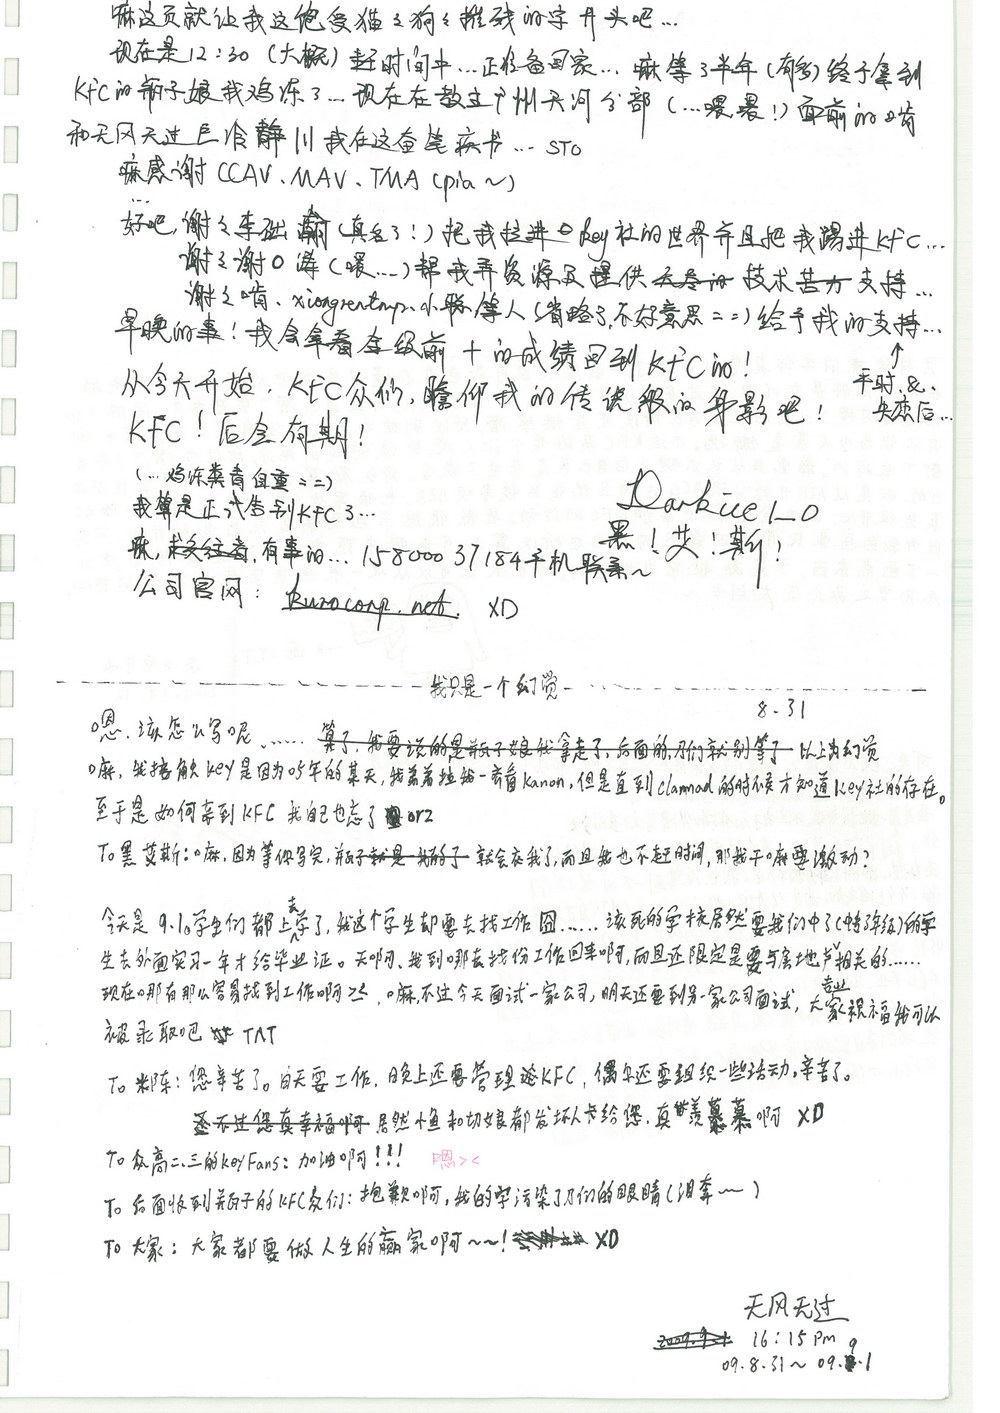 嘛这页就让我这饱受猫々狗々摧残的字开头吧…
现在是12:30（大概）赶时间中…正准备回家…嘛等了半年（有多）终于拿到
KFC的瓶子娘我鸡冻了…现在在教主广州天河分部（…喂喂！）面前的啃
和天风天过巨冷静川我在这奋笔疾书… STO
嘛感谢 CCAV、MAV、TMA（pia～）
…
好吧，谢々李（真名了！）把我拉进key社的世界并且把我踢进KFC…
谢々谢O（喂…）帮我弄资源及提供无尽的技术苦力支持…
谢々啃、xiongrentmp、小等人（省略了，不好意思==）给予我的支持…
↑
平时&
失恋后…
早晚的事！我会拿着全级前十的成绩回到KFC的！
从今天开始，KFC众们，瞻仰我的传说级的身影吧！
KFC！后会有期！
（…鸡冻类者自重==）
我算是正式告别KFC了…
嘛，求交往者，有事的… 15800037184手机联系～
公司官网：kurocorp.net. XD
Darkice1_0
黑！艾！斯！
我只是一个幻觉
8.31
嗯，该怎么写呢……算了，我要说的是瓶子娘我拿走了，后面的刀们就别等了 以上为幻觉
嘛，我接触key是因为05年的某天，我看Kanon，但是直到clannad的时候才知道key社的存在。
至于是如何来到KFC 我自己也忘了 orz
To 黑艾斯：嘛，因为等你写完，瓶子就是我的了 就会在我了，而且我也不赶时间，那我干嘛要激动？
今天是9.1，学生们都上去学了，我这个学生却要去找工作 囧……该死的学校居然要我们中了（中专3年级）的学
生去外面实习一年才给毕业证。天啊、我到哪去找份工作回来啊，而且还限定是要与房地产相关的……
现在哪有那么容易找到工作啊><，嘛，不过今天面试一家公司，明天还要到另一家公司面试，大家祝福我可以
被录取吧 TAT
To 米陈：您辛苦了。白天要工作，晚上还要管理KFC，偶尔还要组织一些活动，辛苦了。
不过您真幸福啊 居然小鱼和切娘都发坏人卡给您，真羡慕慕啊 XD
To 众高二、三的keyFans：加油啊!!! 嗯><
To 后面收到瓶子的KFC众们：抱歉啊，我的字污染了刀们的眼睛（泪奔～）
To 大家：大家都要做人生的赢家啊～～! XD
天风天过
2009.9.1 16:15 Pm
09.8.31～09.9.1